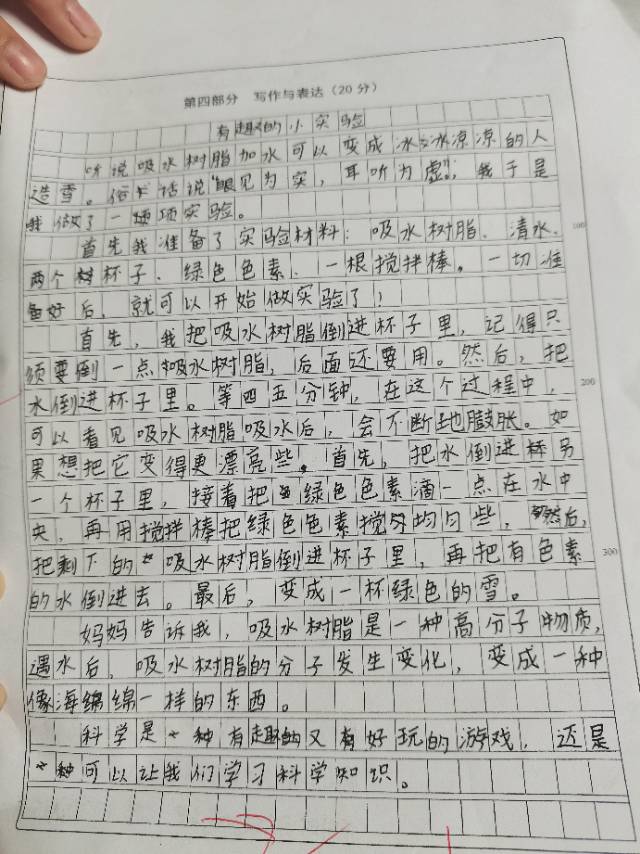 第四部分 写作与表达（20分）
有趣的小实验
听说吸水树脂加水可以变成冰冰凉凉的人
造雪。俗话说"眼见为实，耳听为虚"，我于是
我做了一项实验。
首先我准备了实验材料：吸水树脂、清水、
100
两个杯子、绿色色素、一根搅拌棒。一切准
备好后，就可以开始做实验了！
首先，我把吸水树脂倒进杯子里，记得只
须要倒一点吸水树脂，后面还要用。然后，把
水倒进杯子里。等四五分钟，在这个过程中，
200
可以看见吸水树脂吸水后，会不断地膨胀。如
果想把它变得更漂亮些。首先，把水倒进另
一个杯子里，接着把绿色色素滴一点在水中
央，再用搅拌棒把绿色色素搅匀均匀些，然后，
把剩下的吸水树脂倒进杯子里，再把有色素
300
的水倒进去。最后，变成一杯绿色的雪。
妈妈告诉我，吸水树脂是一种高分子物质，
遇水后，吸水树脂的分子发生变化，变成一种
像海绵绵一样的东西。
科学是一种有趣的又有好玩的游戏，还是
一种可以让我们学习科学知识。